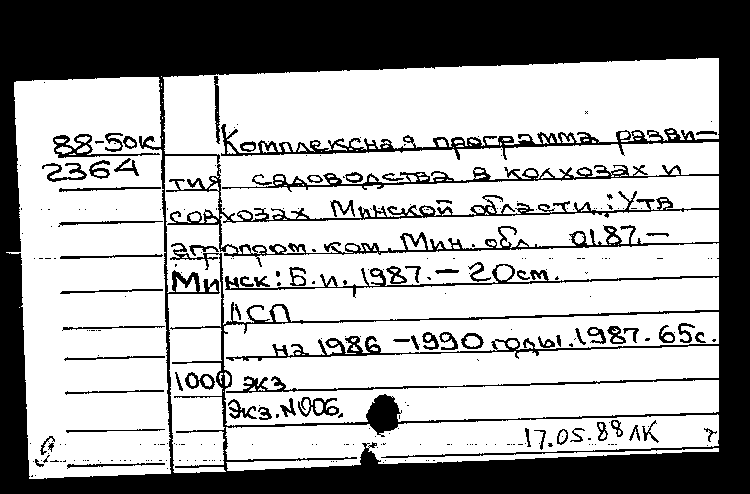 88-50К Комплексная программа разви-
2364 тия садоводства в колхозах и
совхозах Минской области.: Утв.
агропром. ком. Мин. обл. 01.87.—
Минск: Б.и., 1987.— 20см.
ДСП
... на 1986 -1990 годы. 1987. 65с.
1000 экз.
Экз. N006.
17.05.88 ЛК